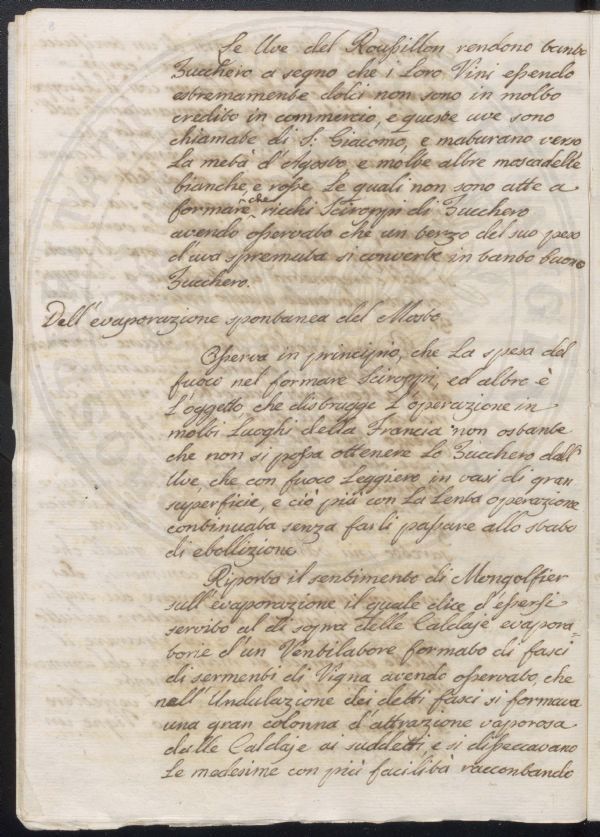 Le Uve del Roussillon rendono tanto
Zucchero a segno che i Loro Vini essendo
estremamente dolci non sono in molto
credito in commercio, e queste uve sono
chiamate di S: Giacomo, e maturano verso
La metà d'Agosto e molte altre moscadelle
bianche, e rosse Le quali non sono atte a
formare che ricchi Sciroppi di Zucchero
avendo osservato che un terzo del suo peso
d'uva spremuta si converte in tanto buono
Zucchero.
Dell'evaporazione spontanea del Mosto
Osserva in principio, che La spesa del
fuoco nel formare Sciroppi, ed altro è
L'oggetto che distrugge L'operazione in
molti Luoghi della Francia non ostante
che non si possa ottenere Lo Zucchero dall'
Uve che con fuoco Leggiero in vasi di gran
superficie, e ciò più con La Lenta operazione
continuata senza farli passare allo stato
di ebollizione
Riporta il sentimento di Mongolfier
sull'evaporazione il quale dice d'essersi
servito al di sopra delle Caldaje evapora=
torie d'un Ventilatore formato di fasci
di sermenti di Vigna avendo osservato, che
nell'Undulazione dei detti fasci si formava
una gran colonna d'attrazione vaporosa
dalle Caldaje ai suddetti, e si disseccavano
Le medesime con più facilità raccontando